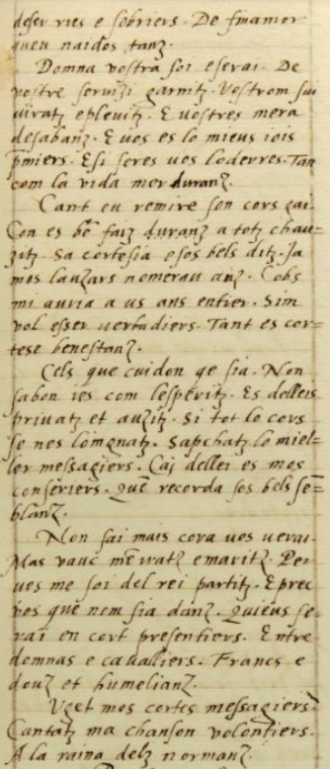 deser ries e sobriers. De fin amor
queu naidos tanz.
Domna vostra soi eserai. De
vostre servizi garnitz. Vostrom sui
iuratz eplevitz. E vostres mera
desabanz. E vos es lo mieus iois
pmiers. E si seres vos loderres. Tan
com la vida mer duranz.
Cant eu remire son cors gai.
Con es bē faiz duranz a totz chau=
zitz. Sa cortesia esos bels ditz. Ja
mos lauzars nomerau anz. Cobs
mi auria a us ans entier. Sim
vol esser vertadiers. Tant es cor=
tese benestanz.
Cels que cuidon qe sia. Non
sabon ies com lesperitz. Es delleis
privatz et auzitz. Si tot lo cors
se nes loingnatz. Sapchatz lo miel=
ler messagiers. Cai dellei es mos
consiriers. Quē recorda sos bels sē=
blanz.
Non sai mais cora vos verai.
Mas vauc mē iratz emaritz. Per
vos me soi del rei partitz. E prec
vos que nom sia danz. Quieus se=
rai en cort presentiers. Entre
domnas e cavalliers. Francs e
douz et humelianz.
Uget mos cortes messagiers
Cantatz ma chanson volontiers.
A la raina delz normanz.